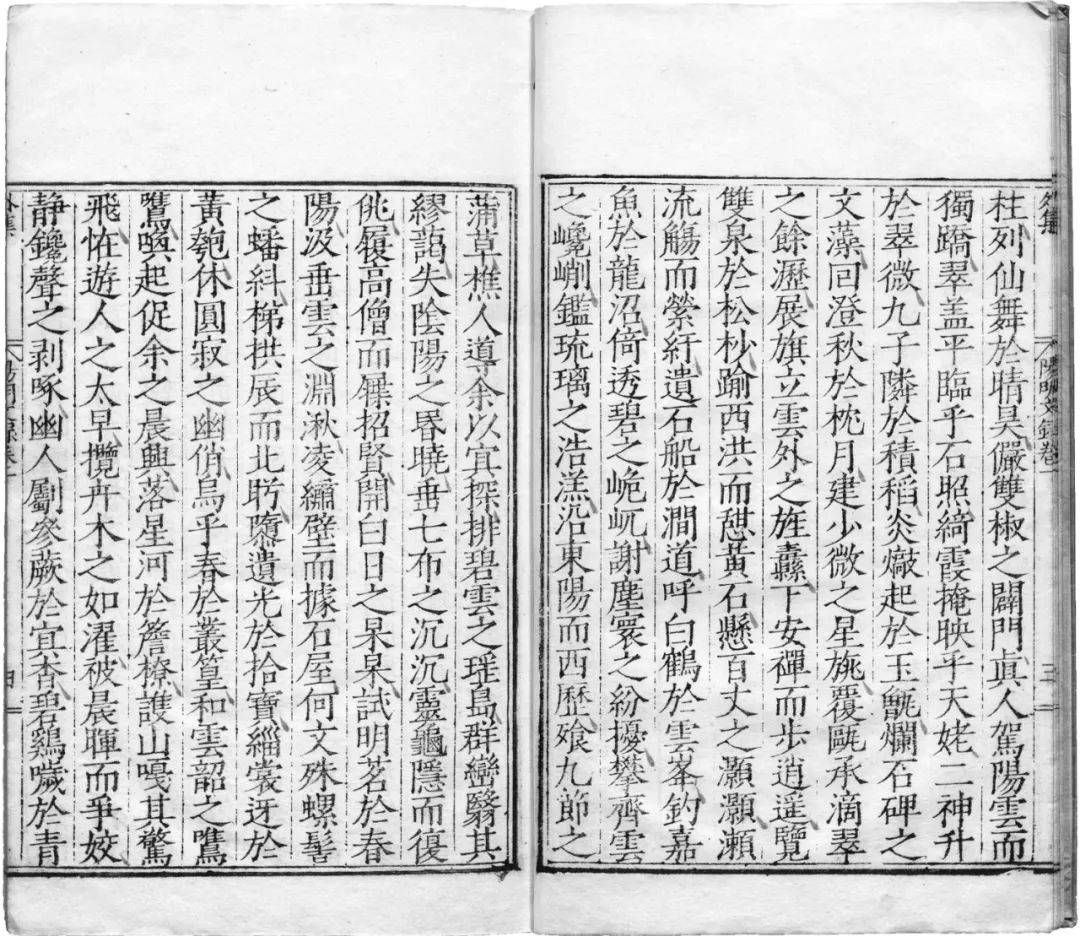 外集 陽明文錄卷 三
柱列仙舞於晴昊儼雙椒之闢門真人駕陽雲而
獨蹻翠盖平臨乎石照綺霞掩映乎天姥二神升
於翠微九子隣於積稻炎熾起於玉甑爛石碑之
文藻回澄秋於枕月建少微之星旐覆甌承滴翠
之餘瀝展旗立雲外之旌纛下安禪而步逍遥覽
雙泉於松杪踰西洪而憇黄石懸百丈之灝灝瀬
流觴而縈紆遺石船於澗道呼白鶴於雲峯釣嘉
魚於龍沼倚透碧之峗屼謝塵寰之紛擾攀齊雲
之巉峭鑑琉璃之浩溔沿東陽而西歷飱九節之
蒲草樵人導余以㝠探排碧雲之瑶島群巒翳其
繆藹失陰陽之昬曉垂七布之沉沉靈龜隱而復
佻履高僧而屧招賢開白日之杲杲試明茗於春
陽汲垂雲之淵湫凌繡壁而據石屋何文殊螺髻
之蟠糾梯拱辰而北盻隳遺光於拾寶緇裳迓於
黄匏休圓寂之幽俏鳥乎春於叢篁和雲韶之鷕
鷕喚起促余之晨興落星河於簷橑護山嘎其驚
飛怪遊人之太早攬卉木之如濯被晨暉而爭姣
静鑱聲之剥啄幽人劚參蕨於㝠杳碧鷄噦於青
四